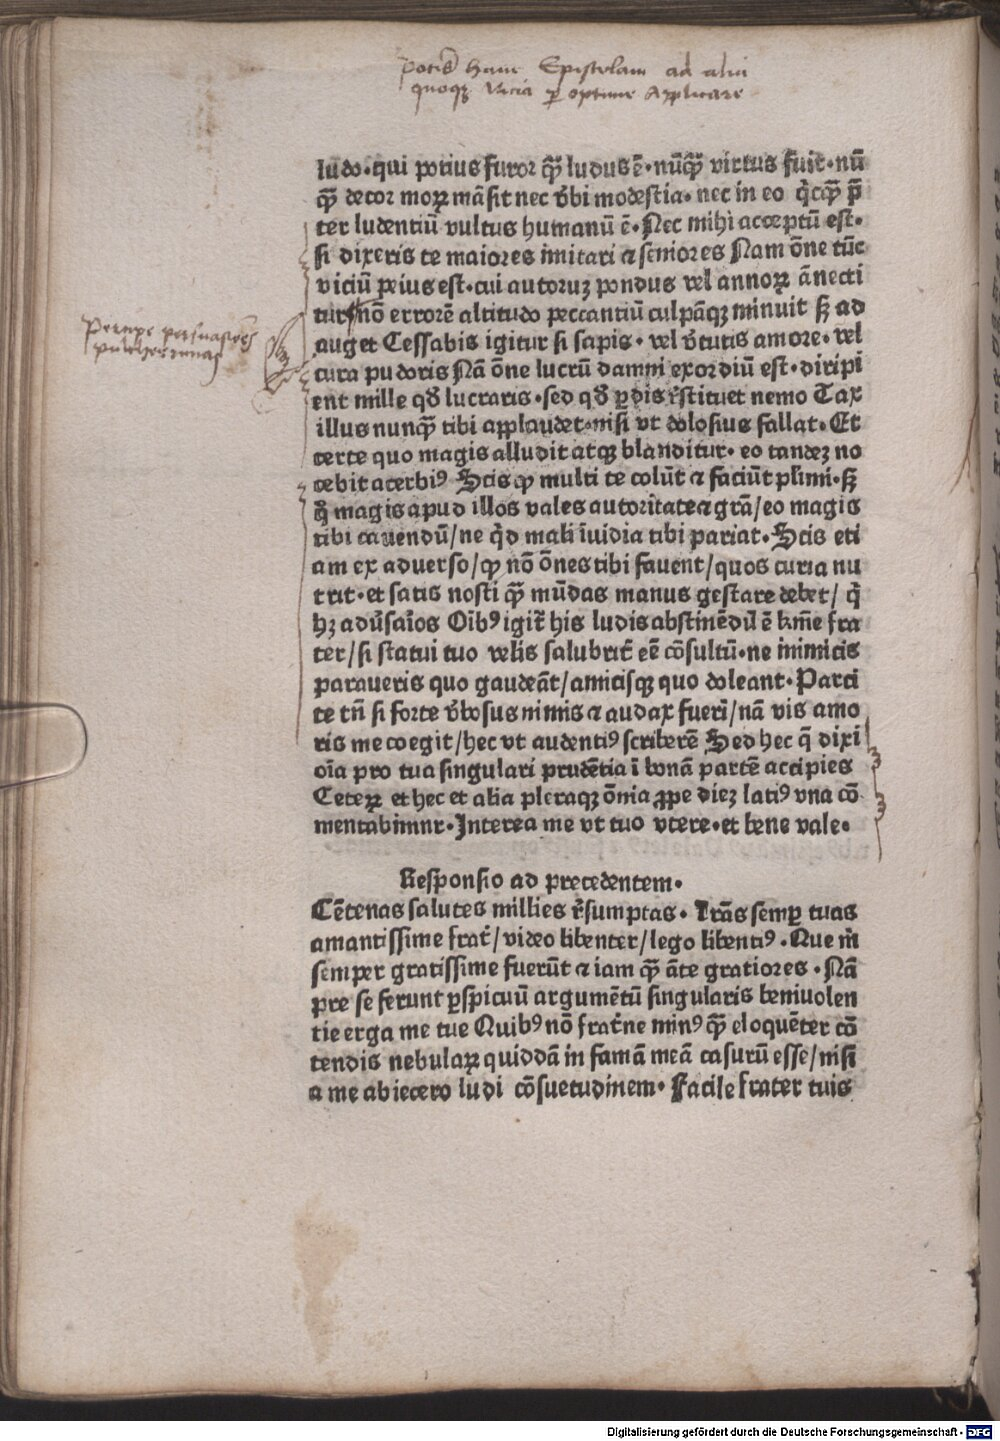 potis hanc Epistolam ad alia
quoqꝫ vicia ꝑ optime Applicare
ludo·qui potius furor qᷓ ludus ē·nūqᷓ virtus fuit·nū
qᷓ decor moꝝ māsit nec v̄bi modestia·nec in eo q̇cqᷓ p̄
ter ludentiū vultus humanū ē·Nec mihi acceptū est·
si dixeris te maiores imitari ⁊ seniores Nam ōne tūc
viciū peius est·cui autoruꝫ pondus vel annoꝝ ānecti
tur nō errorē altitudo peccantiū culpāqꝫ minuit sꝫ ad
auget Cessabis igitur si sapis·vel v̄tutis amore·vel
cura pudoris Nā ōne lucrū damni exordiū est·diripi
ent mille qð lucraris·sed qð ꝑdis r̄stituet nemo Tax
illus nunqᷓ tibi applaudet·nisi vt dolosius fallat·Et
certe quo magis alludit atqꝫ blanditur·eo tandeꝫ no
cebit acerbiꝰ Scis ꝙ multi te colūt ⁊ faciūt plīmi·sꝫ
q̊ magis apud illos vales autoritate ⁊ grā/eo magis
tibi cavendū/ne q̇d mali īuidia tibi pariat·Scis eti
am ex aduerso/ꝙ nō ōnes tibi fauent/quos curia nu
trit·et satis nosti qᷓ mūdas manus gestare debet/ q̇
hꝫ adūsaīos Oībꝰ igit᷑ his ludis abstinēdū ē kme fra
ter/si statui tuo velis salubrit᷑ eē cōsultū·ne inimicis
paraueris quo gaudeāt/amicisqꝫ quo doleant·Parci
te tn̄ si forte v̄bosus nimis ⁊ audax fueri/nā vis amo
ris me coegit/hec vt audentiꝰ scriberē Sed hec q̄ dixi
oīa pro tua singulari prudētia ī bonā partē accipies
Ceteꝝ et hec et alia pleraqꝫ ōnia ꝓpe dieꝫ latiꝰ vna cō
mentabimur·Interea me vt tuo vtere·et bene vale·
Perẜ persuasiones
pulcherrimas
Responsio ad precedentem·
Cētenas salutes millies r̄sumptas·Lr̄as semꝑ tuas
amantissime frat᷑/video libenter/lego libentiꝰ·Que m̄
semper gratissime fuerūt ⁊ iam qᷓ āte gratiores·Nā
pre se ferunt ꝑspicuū argumētū singularis beniuolen
tie erga me tue Quibꝰ nō frat᷑ne minꝰ qᷓ eloquēter cō
tendis nebulaꝝ quiddā in famā meā casurū esse/nisi
a me abiecero ludi cōsuetudinem·Facile frater tuis
Digitalisierung gefördert durch die Deutsche Forschungsgemeinschaft - DFG